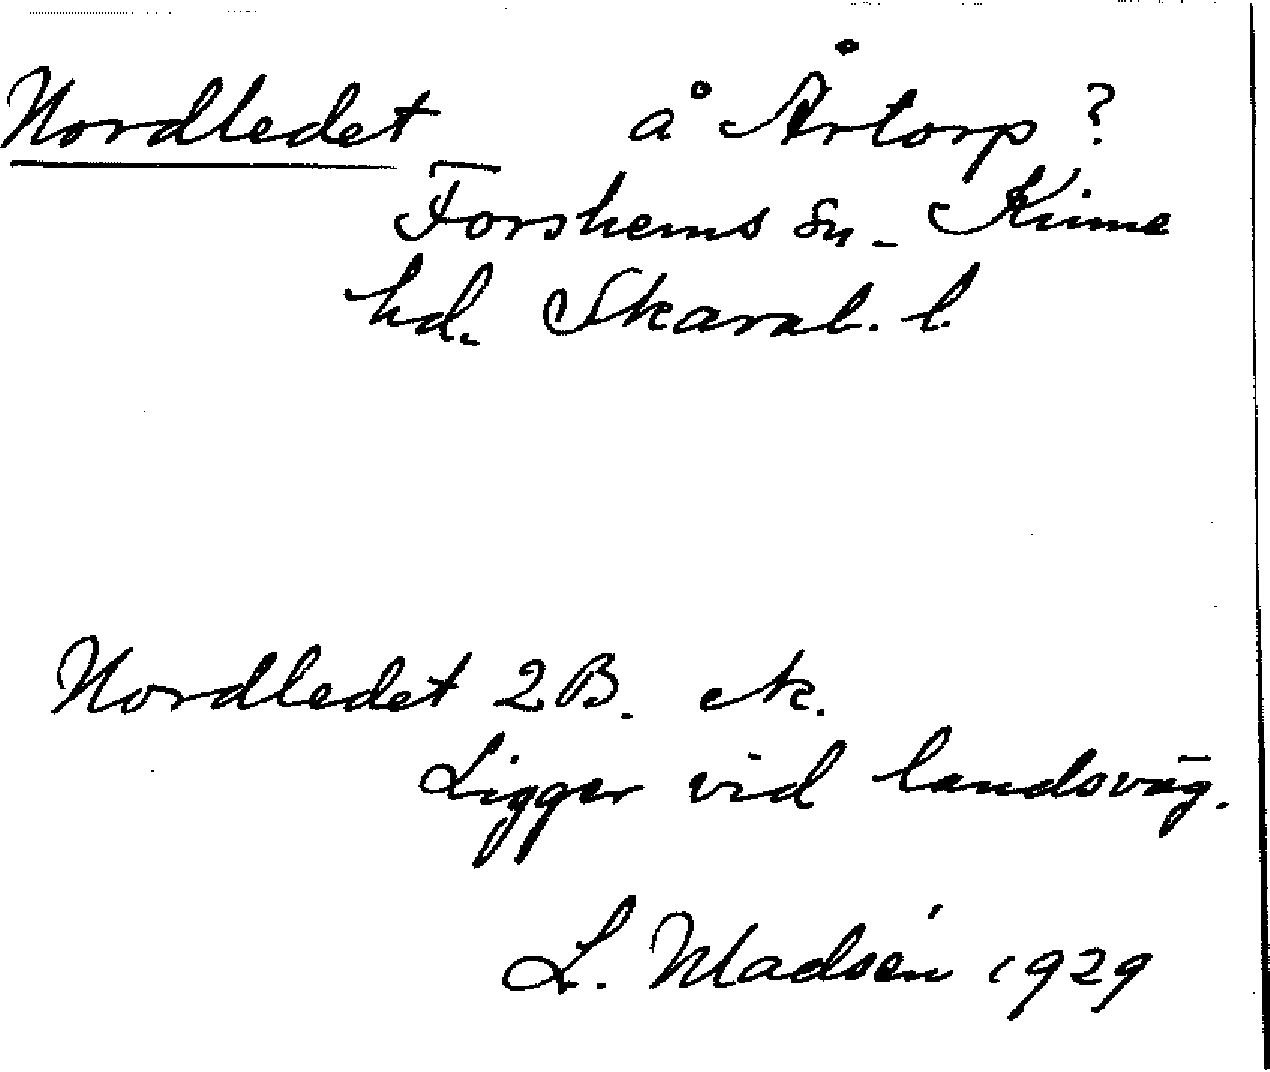 Nordledet å Årtorp ?
Forshems sn. Kinne
hd. Skarab. l.
Nordledet 2B. ck.
Ligger vid landsväg.
L. Madsén 1929